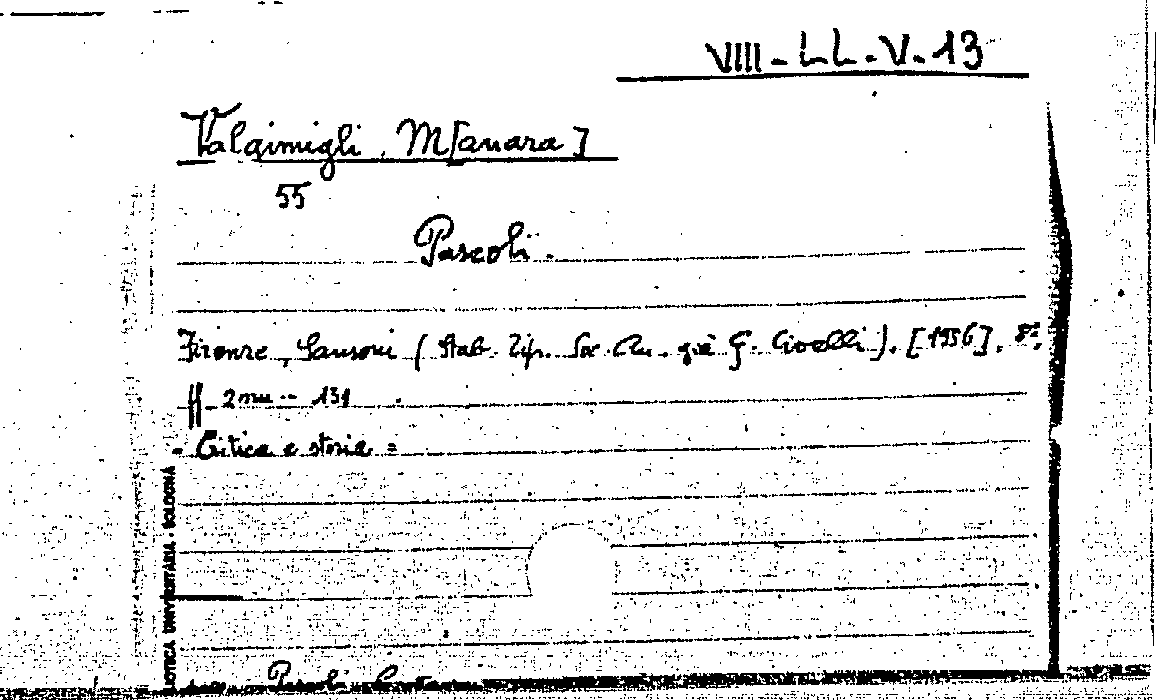 VIII - LL. V. 13
Valgimigli, M[anara]
55
Pascoli.
Firenze, Sansoni (Stab. Tip. Soc. An. già G. Civelli). [1956]. 8°.
pp. 2nn -- 131
= Critica e storia =
BIBLIOTECA UNIVERSITARIA - BOLOGNA
Pascoli